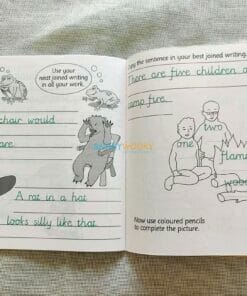 Use your
neat joined writing
in all your work.
chair would
are.
A rat in a hat
looks silly like that.
Copy the sentence in your best joined writing.
There are five children
camp fire.
two
one
flame
Now use coloured pencils
to complete the picture.